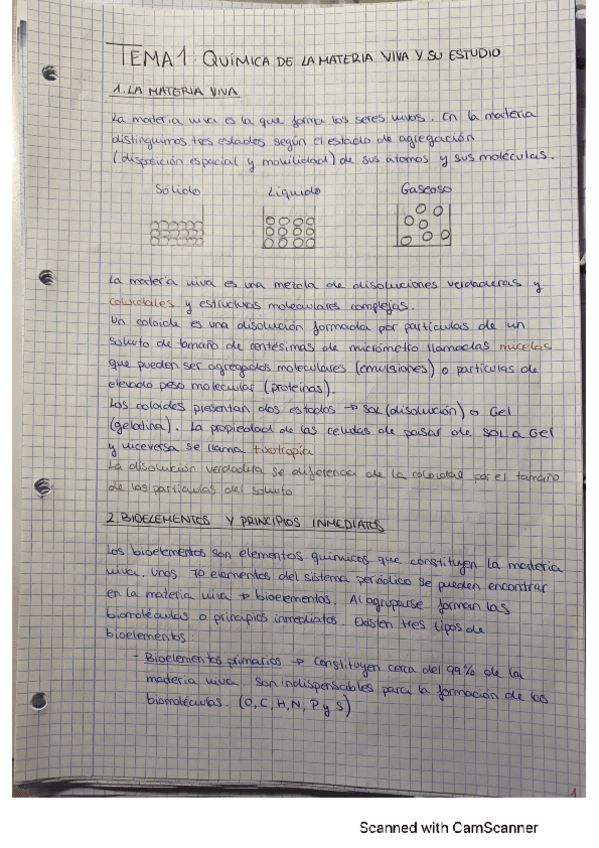 TEMA 1. QUÍMICA DE LA MATERIA VIVA Y SU ESTUDIO
1. LA MATERIA VIVA
La materia viva es la que forma los seres vivos. En la materia
distinguimos tres estados según el estado de agregación
(disposición espacial y movilidad) de sus átomos y sus moléculas.
Sólido Líquido Gaseoso
La materia viva es una mezcla de disoluciones verdaderas y
coloidales y estructuras moleculares complejas.
Un coloide es una disolución formada por partículas de un
soluto de tamaño de centésimas de micrómetro llamadas micelas
que pueden ser agregados moleculares (emulsiones) o partículas de
elevado peso molecular (proteínas).
Los coloides presentan dos estados → SOL (disolución) o Gel
(gelatina). La propiedad de las células de pasar de SOL a Gel
y viceversa se llama tixotropía
La disolución verdadera se diferencia de la coloidal por el tamaño
de las partículas del soluto
2 BIOELEMENTOS Y PRINCIPIOS INMEDIATOS
Los bioelementos son elementos químicos que constituyen la materia
viva. Unos 70 elementos del sistema periódico se pueden encontrar
en la materia viva → bioelementos. Al agruparse forman las
biomoléculas o principios inmediatos. Existen tres tipos de
bioelementos:
- Bioelementos primarios → Constituyen cerca del 99% de la
materia viva. Son indispensables para la formación de las
biomoléculas. (O, C, H, N, P y S)
1
Scanned with CamScanner